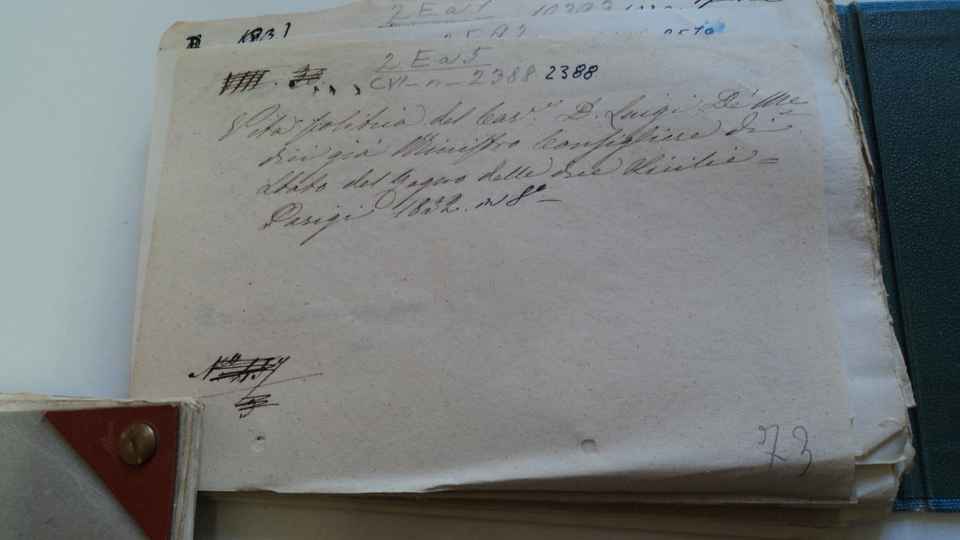 2 Ea 1
1831
2 Ea 5
CVI-n-2388 2388
Vita politica del Cav.re D. Luigi De' Me=
dici già Ministro Consigliere di
Stato del Regno delle due Sicilie =
Parigi 1832. in 8° —
73